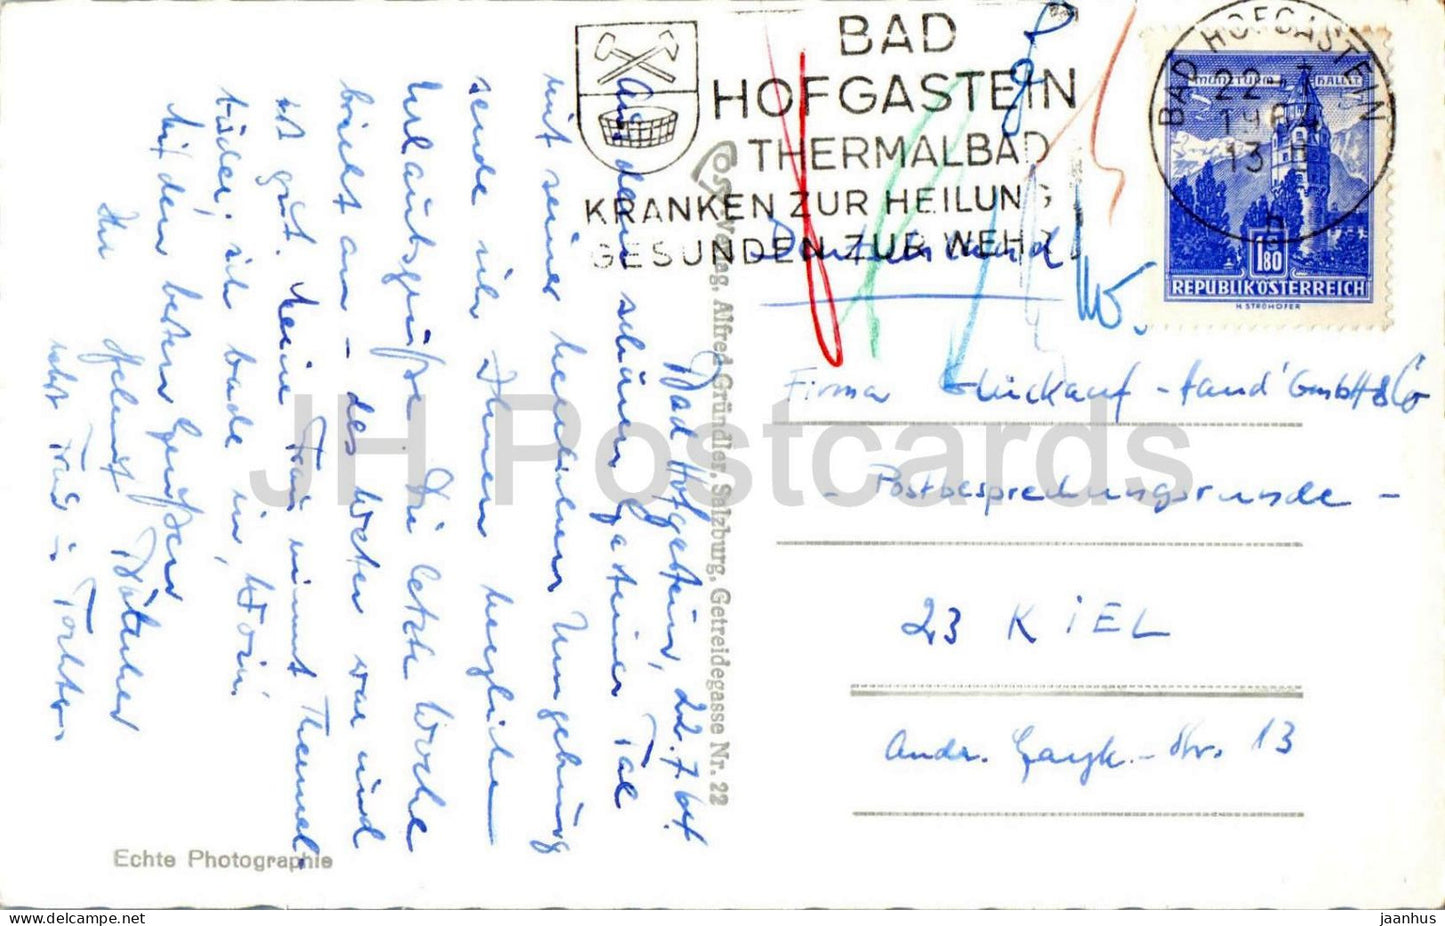 BAD
HOFGASTEIN
THERMALBAD
KRANKEN ZUR HEILUNG
GESUNDEN ZUR WEHR
BAD HOFGASTEIN
22.
13
h
MÜNZTURM HALL I.T.
1.80
REPUBLIK ÖSTERREICH
H. STRÖHOFER
Deutschland
Firma Glückauf - Hand' GmbH & Co
- Postbesprechungsrunde -
23 KIEL
Andr. Gayk.-Str. 13
Cosy-Verlag, Alfred Gründler, Salzburg, Getreidegasse Nr. 22
Bad Hofgastein, 22.7.64.
Aus dem schönen Gasteiner Tal
mit seiner herrlichen Umgebung
sende ich Ihnen herzliche
Urlaubsgrüße. Die letzte Woche
bricht an - das Wetter war und
ist gut. Meine Frau nimmt Thermal-
bäder, ich bade in
Mit den besten Grüßen
Ihr Helmut
nebst Frau u. Tochter
Echte Photographie
JH Postcards
delcampe.net
jaanhus